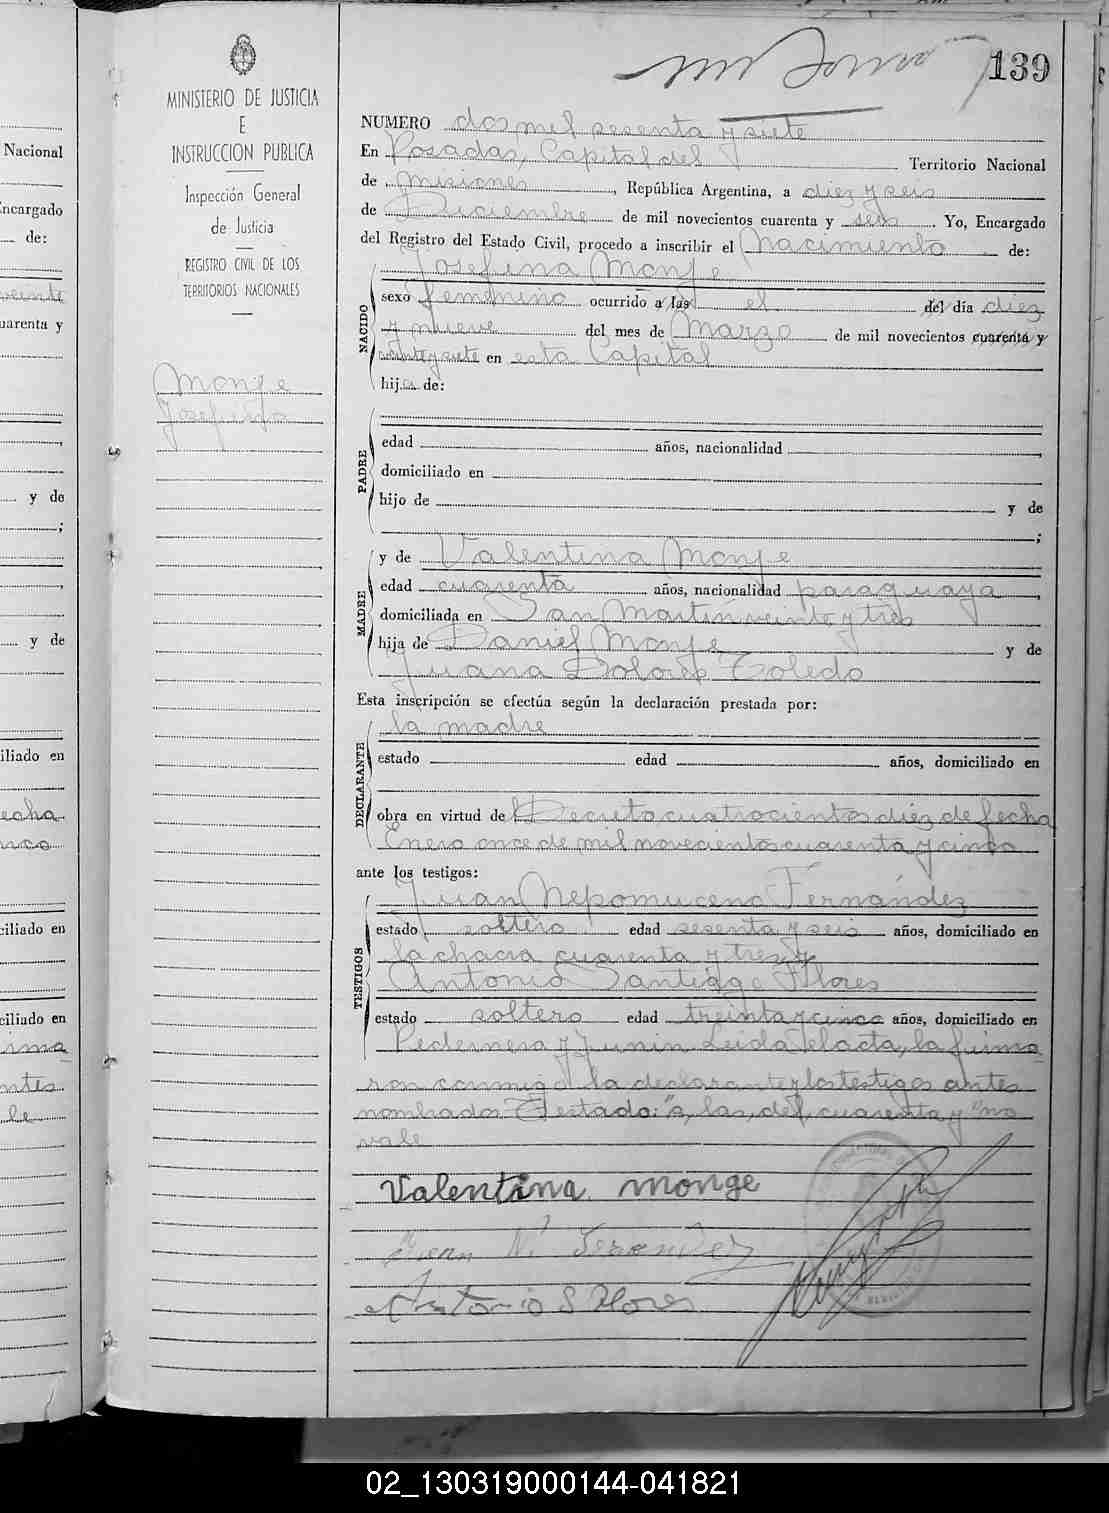 139
MINISTERIO DE JUSTICIA
E
INSTRUCCION PUBLICA
Inspección General
de Justicia
REGISTRO CIVIL DE LOS
TERRITORIOS NACIONALES
Monge
Josefina
NUMERO dos mil sesenta y siete
En Posadas, Capital del Territorio Nacional
de Misiones, República Argentina, a diez y seis
de Diciembre de mil novecientos cuarenta y seis. Yo, Encargado
del Registro del Estado Civil, procedo a inscribir el Nacimiento de:
NACIDO
Josefina Monge
sexo femenino ocurrido a las el del día diez
y nueve del mes de Marzo de mil novecientos cuarenta y
veinte y siete en esta Capital
hija de:
PADRE
edad años, nacionalidad
domiciliado en
hijo de y de
;
MADRE
y de Valentina Monge
edad cuarenta años, nacionalidad paraguaya,
domiciliada en San Martín veinte y tres
hija de Daniel Monge y de
Juana Dolores Toledo
Esta inscripción se efectúa según la declaración prestada por:
DECLARANTE
la madre
estado edad años, domiciliado en
obra en virtud del Decreto cuatrocientos diez de fecha
Enero once de mil novecientos cuarenta y cinco
ante los testigos:
TESTIGOS
Juan Nepomuceno Fernández
estado soltero edad sesenta y seis años, domiciliado en
la chacra cuarenta y tres y
Antonio Santiago Flores
estado soltero edad treinta y cinco años, domiciliado en
Pedernera y Junin. Leida el acta, la firma
ron conmigo la declarante y los testigos antes
nombrados. Testado: "a, las, del, cuarenta y" no
vale
Valentina monge
Juan N. Fernandez
Antonio S Flores
Nacional
Encargado
de:
veinte
cuarenta y
y de
;
y de
iliado en
fecha
ciliado en
ciliado en
02_130319000144-041821